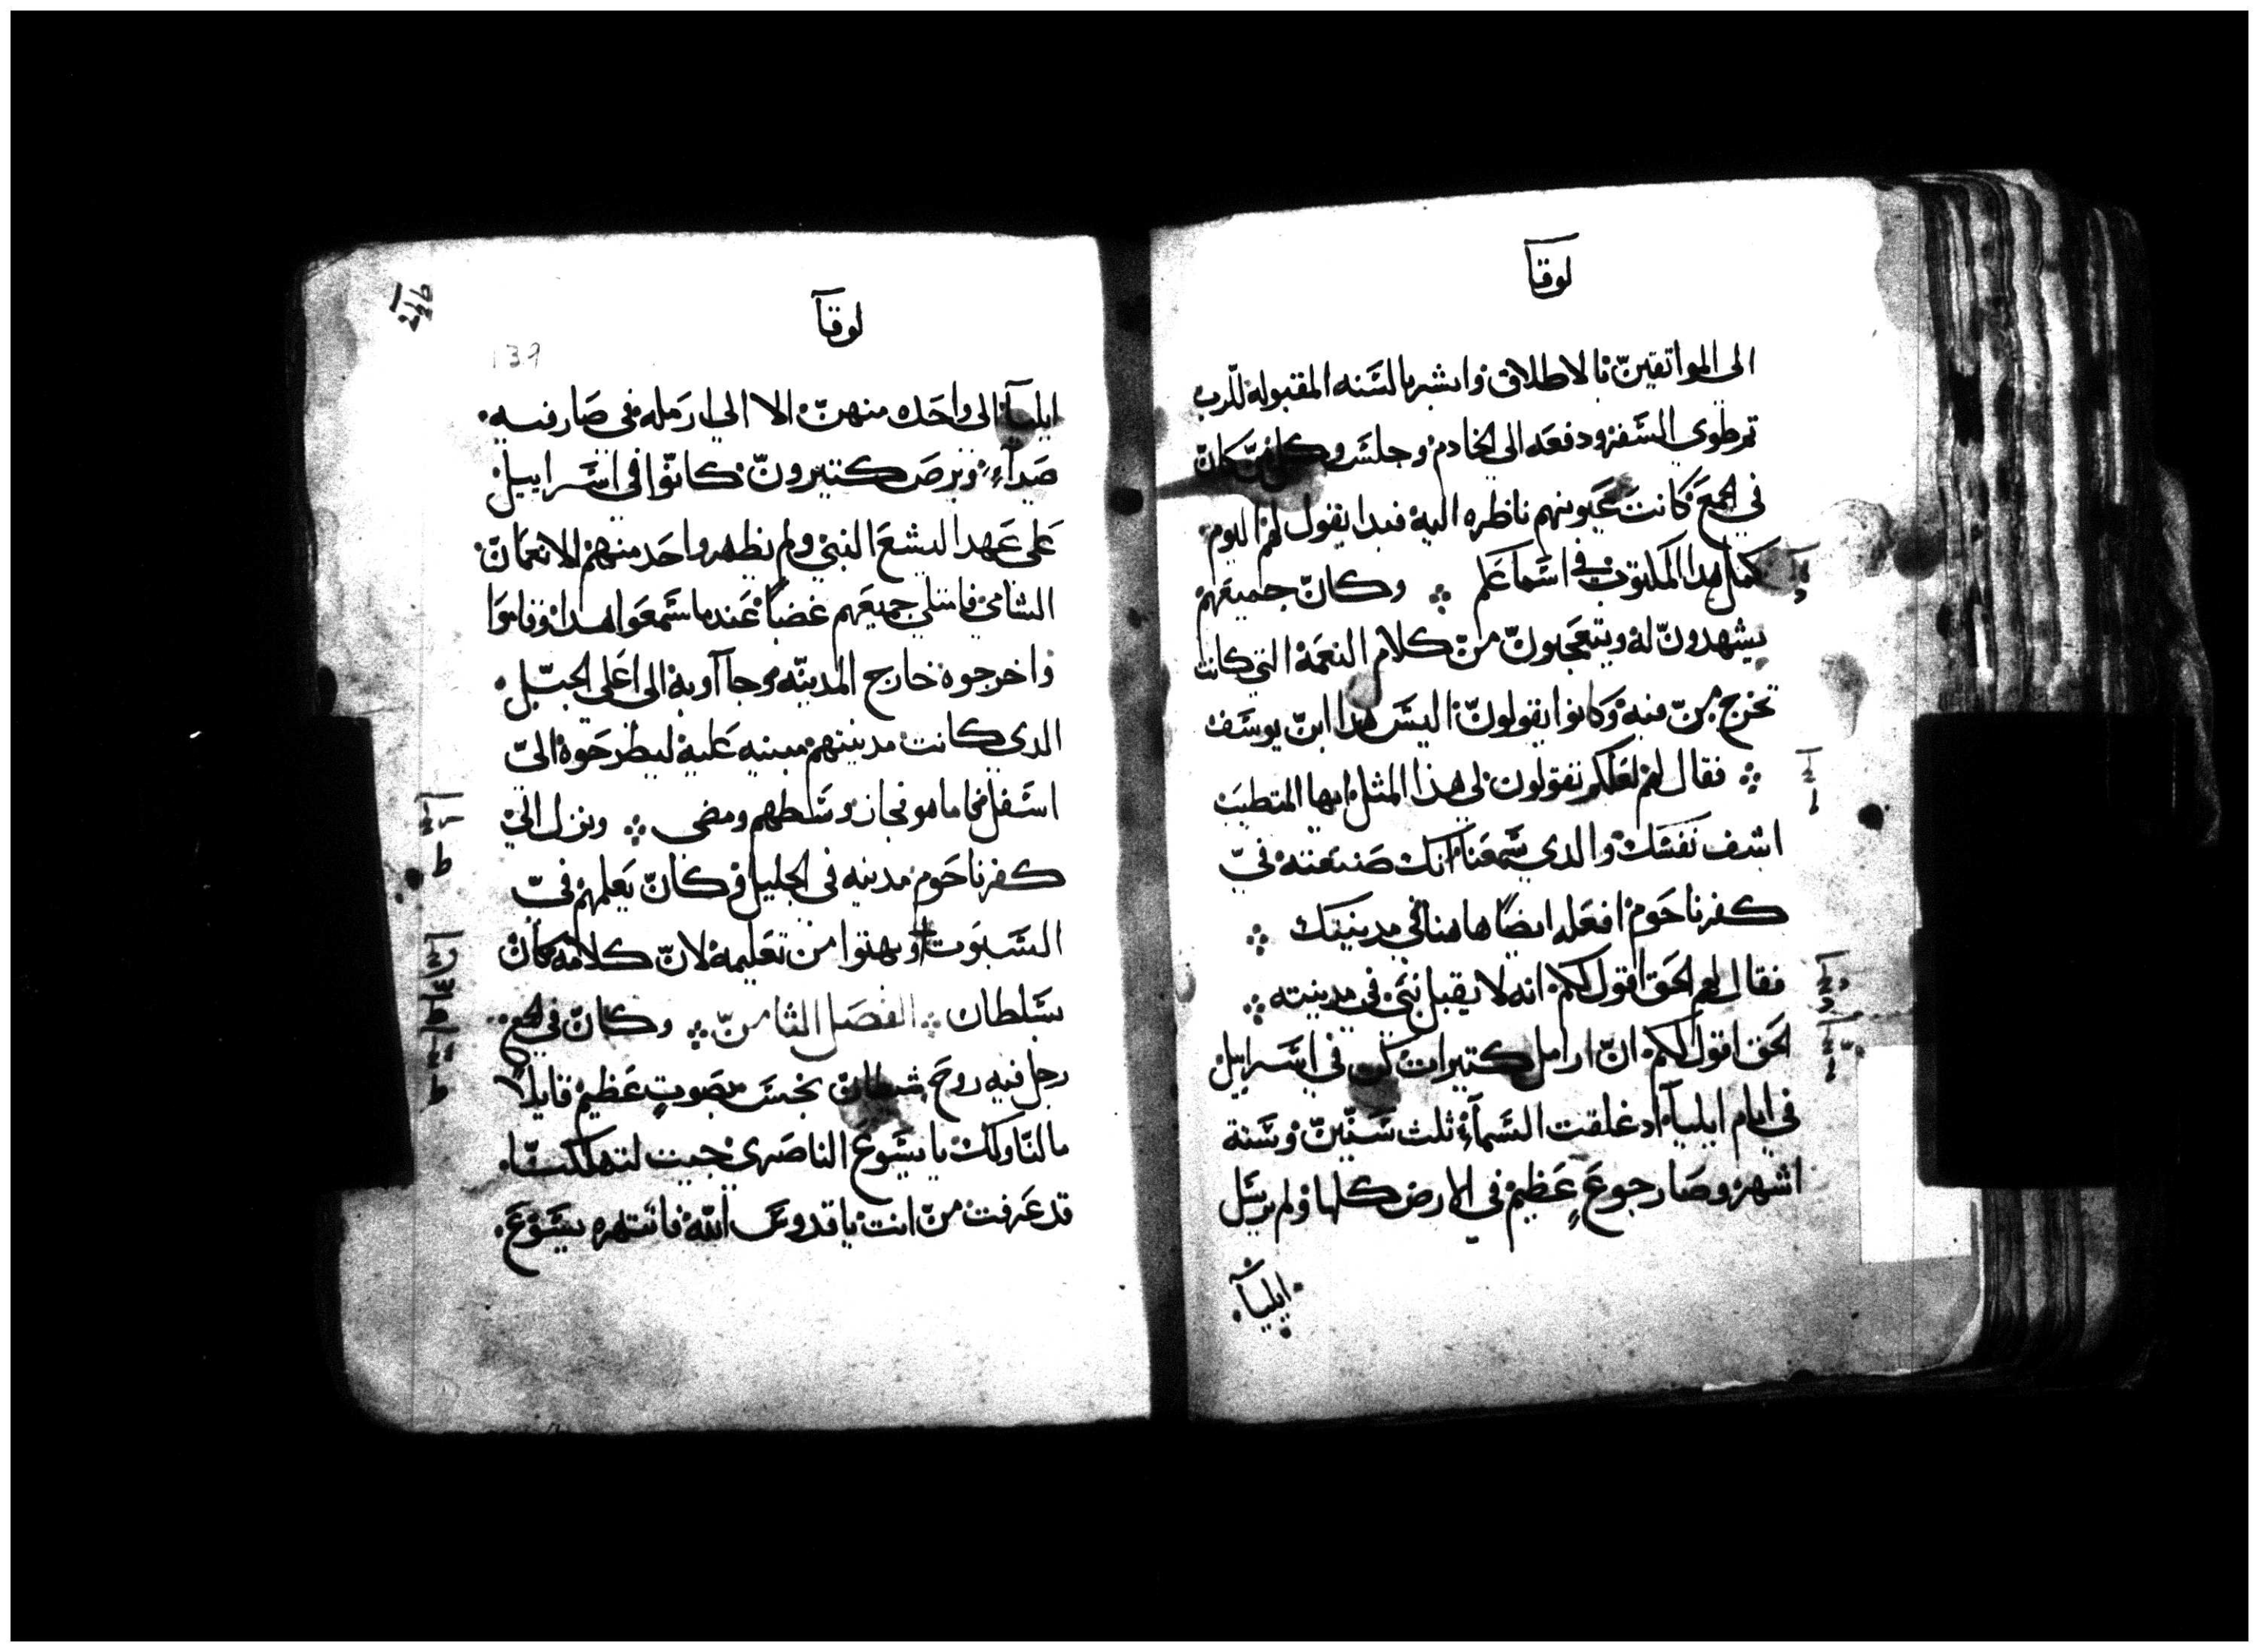 لوقآ
الى المواتقين بالاطلاق وابشر بالسنه المقبوله للرب
تم طوى السفر ودفعه الى الخادم وجلس وكل من كان
في الجمع كانت عيونهم ناظره اليه فبدا يقول لهم اليوم
كمل هدا المكتوب في اسماعكم ⁘ وكان جميعهم
يشهدون له ويتعجبون من كلام النعمة التي كانت
تخرج من فيه وكانوا يقولون اليس هدا ابن يوسف
⁘ فقال لهم لعلكم تقولون لي هذا المثل ايها المتطبب
اشف نفسك والدي سمعنا انك صنعته في
كفرناحوم افعله ايضا هاهنا في مدينتك ⁘
فقال لهم الحق اقول لكم انه لا يقبل نبي في مدينته ⁘
الحق اقول لكم ان ارامل كتيرات كن في اسراييل
في ايام ايليآ اد غلقت السمآء ثلث سنين وستة
اشهر وصار جوع عظيم في الارض كلها ولم يرسل
ايليآ
لوقآ
139
ايليآ الى واحده منهن الا الي ارمله في صارفيه
صيدآء وبرص كتيرون كانوا في اسراييل
على عهد اليشع النبي ولم يطهر واحد منهم الا نعمان
الشامي فامتلي جميعهم غضبا عندما سمعوا هدا وقاموا
واخرجوه خارج المدينه وجآاو به الى اعلى الجبل
الدي كانت مدينتهم مبنيه عليه ليطرحوه الى
اسفل فاما هو فجاز وسطهم ومضى ⁘ ونزل الي
كفرناحوم مدينه في الجليل وكان يعلمهم في
السبوت وبهتوا من تعليمه لان كلامه كان
بسلطان ⁘ الفصل الثامن ⁘ وكان في الجمع
رجل فيه روح شيطان نجس فصوت عظيم قايلا
ما لنا ولك يا يسوع الناصري جيت لتهلكنا
قد عرفت من انت يا قدوس الله فانتهره يسوع